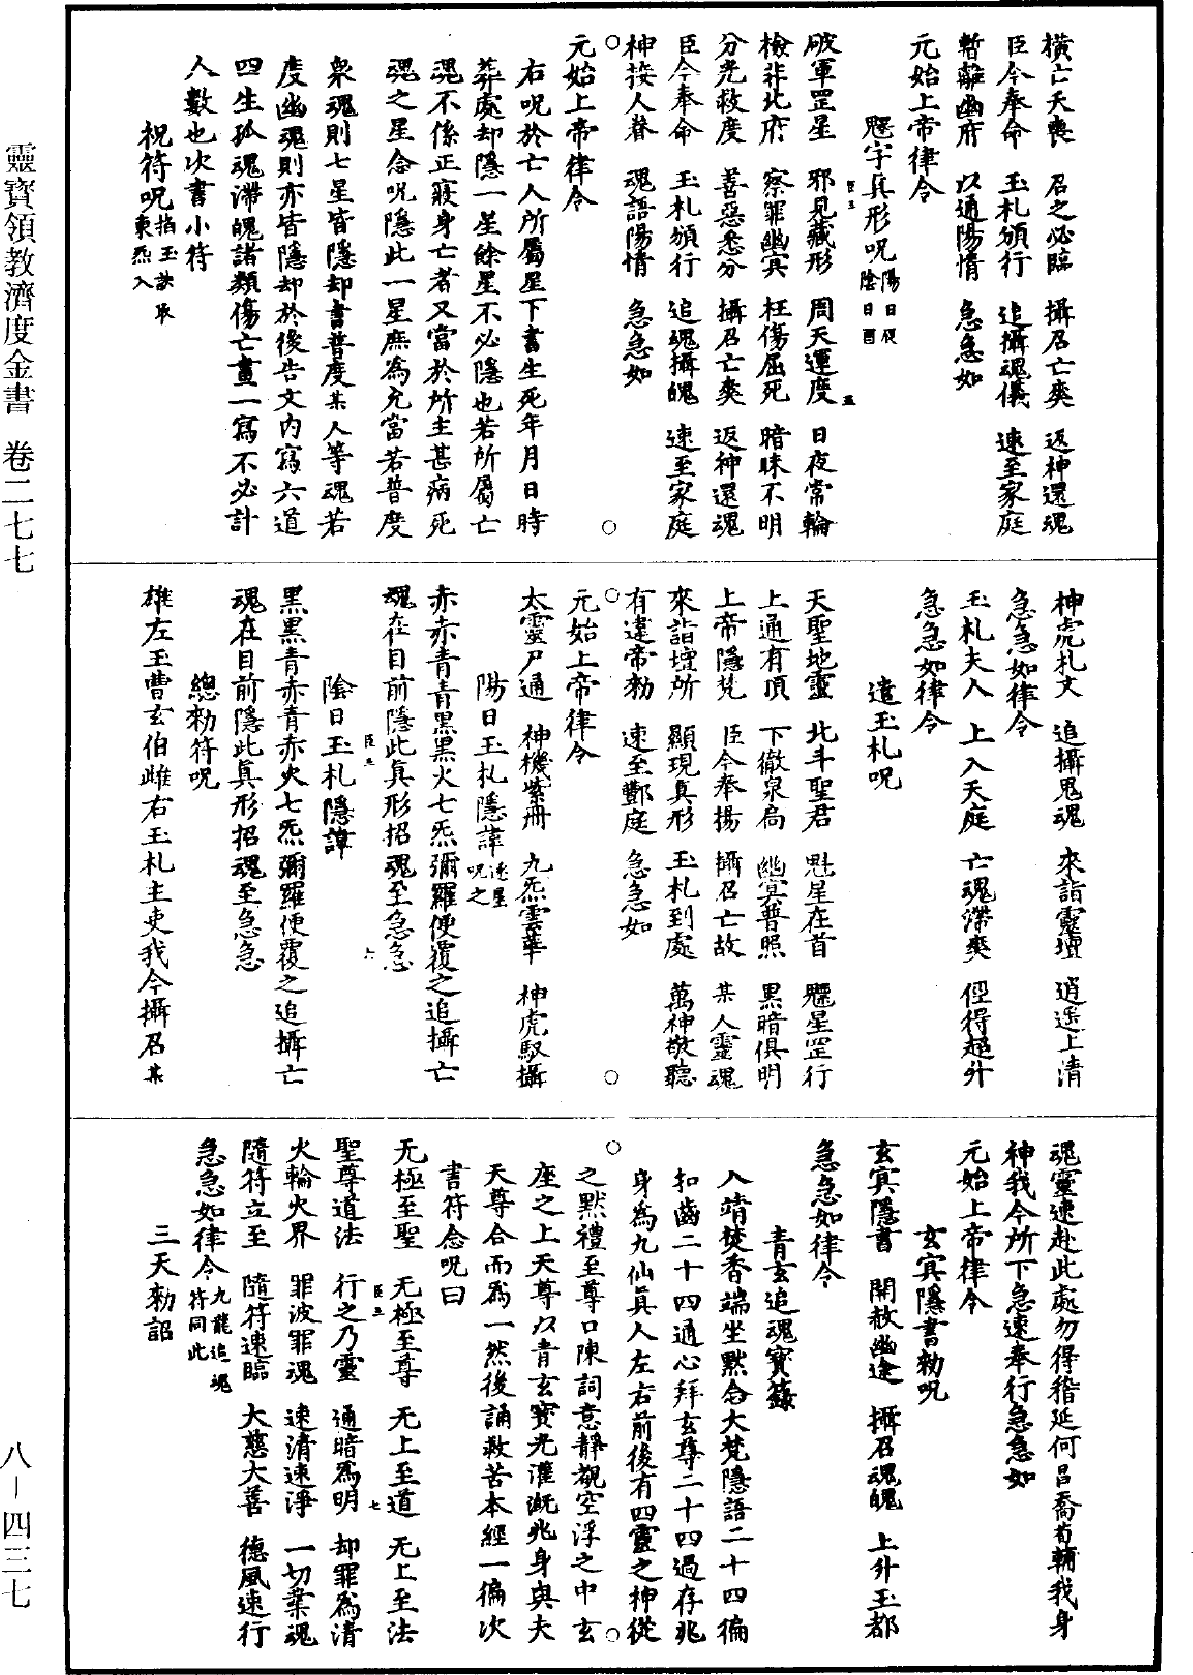 橫亡夭喪　召之必臨　攝召亡爽　返神還魂
臣今奉命　玉札頒行　追攝魂儀　速至家庭
暫離幽府　以通陽情　急急如
元始上帝律令
魒字真形呪陽日復陰日酉
破軍罡星　邪見藏形　周天運度　日夜常輪
檢非北府　察罪幽冥　枉傷屈死　暗昧不明
分光救度　善惡悉分　攝召亡爽　返神還魂
臣今奉命　玉札頒行　追魂攝魄　速至家庭
神接人眷　魂語陽情　急急如
元始上帝律令
右呪於亡人所屬星下書生死年月日時
葬處却隱一星餘星不必隱也若所屬亡
魂不係正寢身亡者又當於所主甚病死
魂之星念呪隱此一星庶為允當若普度
衆魂則七星皆隱却書普度某人等魂若
度幽魂則亦皆隱却於後告文內寫六道
四生孤魂滯魄諸類傷亡畫一寫不必計
人數也次書小符
祝符呪掐玉訣取東炁入
神虎札文　追攝鬼魂　來詣靈壇　逍遙上清
急急如律令
玉札夫人　上入天庭　亡魂滯爽　俓得超升
急急如律令
遣玉札呪
天聖地靈　北斗聖君　魁星在首　魒星罡行
上通有頂　下徹泉扃　幽冥普照　黑暗俱明
上帝隱梵　臣今奉揚　攝召亡故　某人靈魂
來詣壇所　顯現真形　玉札到處　萬神敬聽
有違帝勑　速至酆庭　急急如
元始上帝律令
太靈尸通　神機紫冊　九炁雲華　神虎馭攝
陽日玉札隱諱逐星呪之
赤赤青青黑黑火七炁彌羅便覆之追攝亡
魂在目前隱此真形招魂至急急
陰日玉札隱諱
黑黑青赤青赤火七炁彌羅便覆之追攝亡
魂在目前隱此真形招魂至急急
總勑符呪
雄左玉曹玄伯雌右玉札主吏我今攝召某
魂靈速赴此處勿得稽延何呂喬荀輔我身
神我今所下急速奉行急急如
元始上帝律令
玄冥隱書勑呪
玄冥隱書　開赦幽途　攝召魂魄　上升玉都
急急如律令
青玄追魂寶籙
入靖焚香端坐默念大梵隱語二十四徧
扣齒二十四通心拜玄尊二十四過存兆
身為九仙真人左右前後有四靈之神從
之默禮至尊口陳詞意靜觀空浮之中玄
座之上天尊以青玄寶光灌漑兆身與夫
天尊合而為一然後誦救苦本經一徧次
書符念呪曰
无極至聖　无極至尊　无上至道　无上至法
聖尊道法　行之乃靈　通暗為明　却罪為清
火輪火界　罪波罪魂　速清速淨　一切業魂
隨符立至　隨符速臨　大慈大善　德風速行
急急如律令九龍追魂符同此
三天勑詔
靈寶領教濟度金書　卷二七七
八—四三七